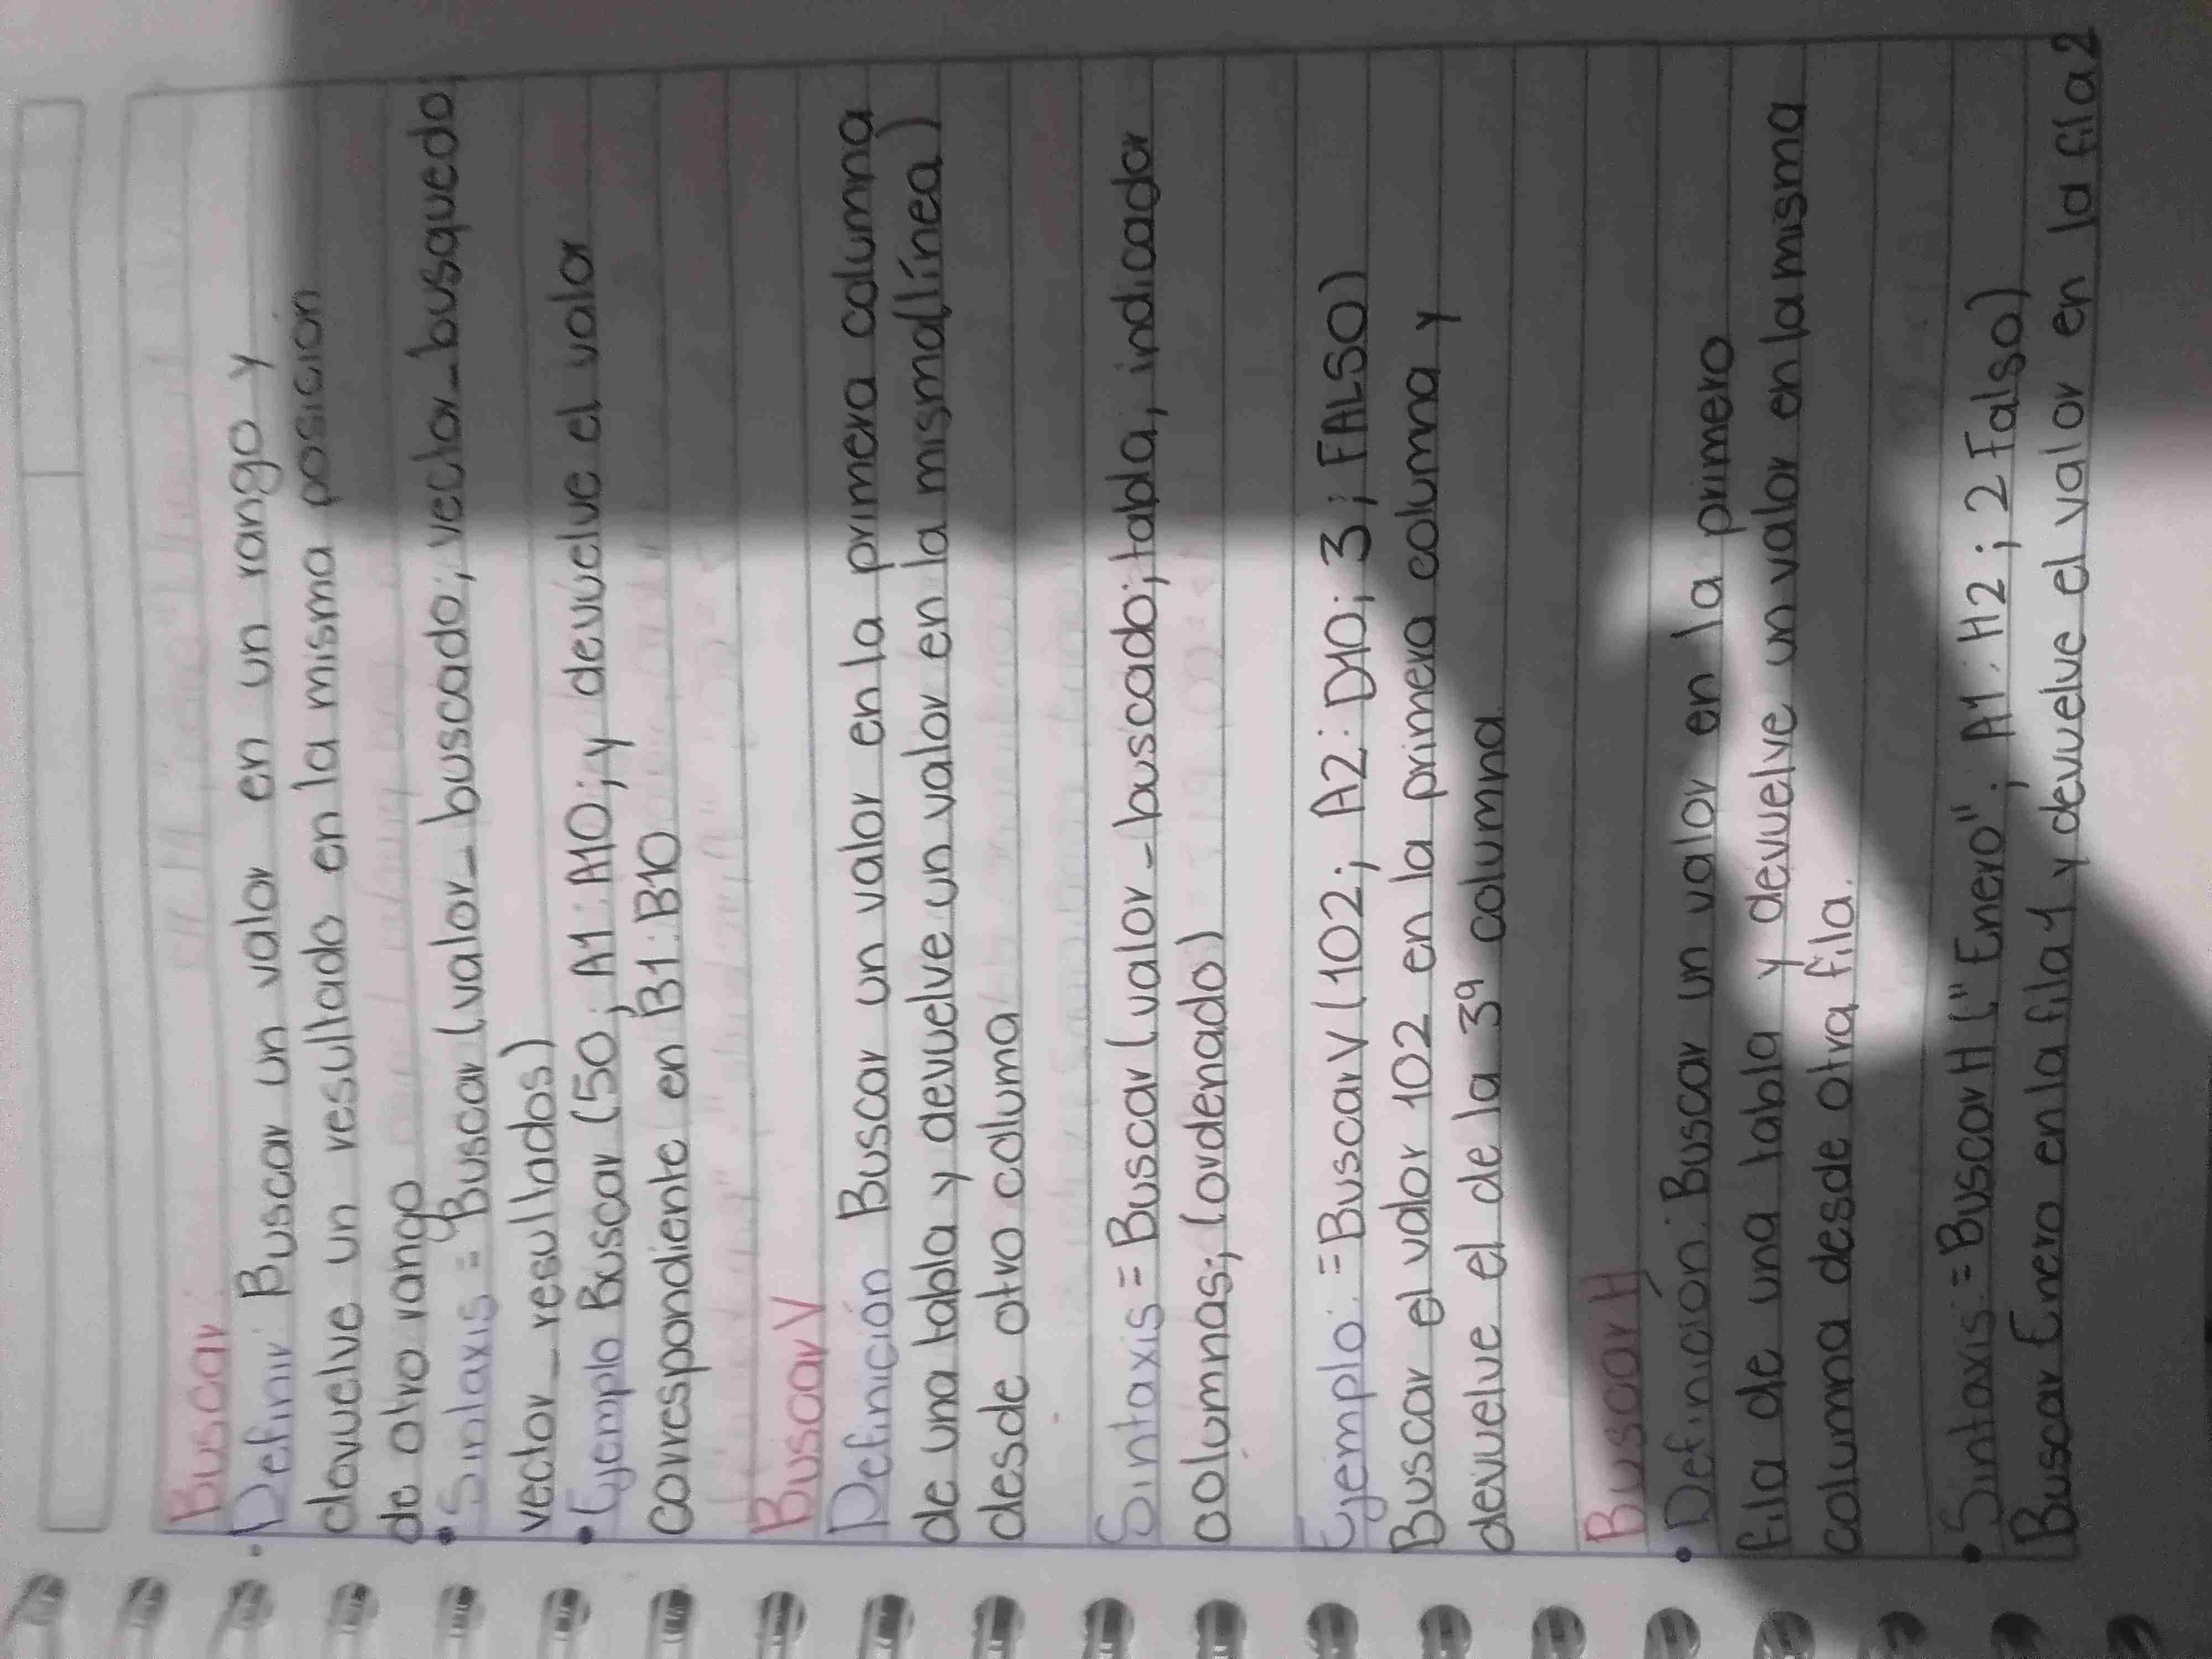 Buscar:
· Definir: Buscar un valor en un rango y
devuelve un resultado en la misma posición
de otro rango
• Sintaxis = Buscar (valor_buscado; vector_busquedo;
vector_resultados)
• Ejemplo Buscar (50; A1:A10; y devuelve el valor
correspondiente en B1:B10
Buscar V
Definición Buscar un valor en la primera columna
de una tabla y devuelve un valor en la misma(línea)
desde otro columa
Sintaxis = Buscar (valor_buscado; tabla, indicador
columnas; (ordenado)
Ejemplo: =BuscarV (102; A2:D10; 3; FALSO)
Buscar el valor 102 en la primera columna y
devuelve el de la 3ª columna
Buscar H
• Definición: Buscar un valor en la primero
fila de una tabla y devuelve un valor en la misma
columna desde otra fila.
• Sintaxis: =Buscar H ("Enero"; A1:H2; 2 Falso)
Buscar Enero en la fila 1 y devuelve el valor en la fila 2